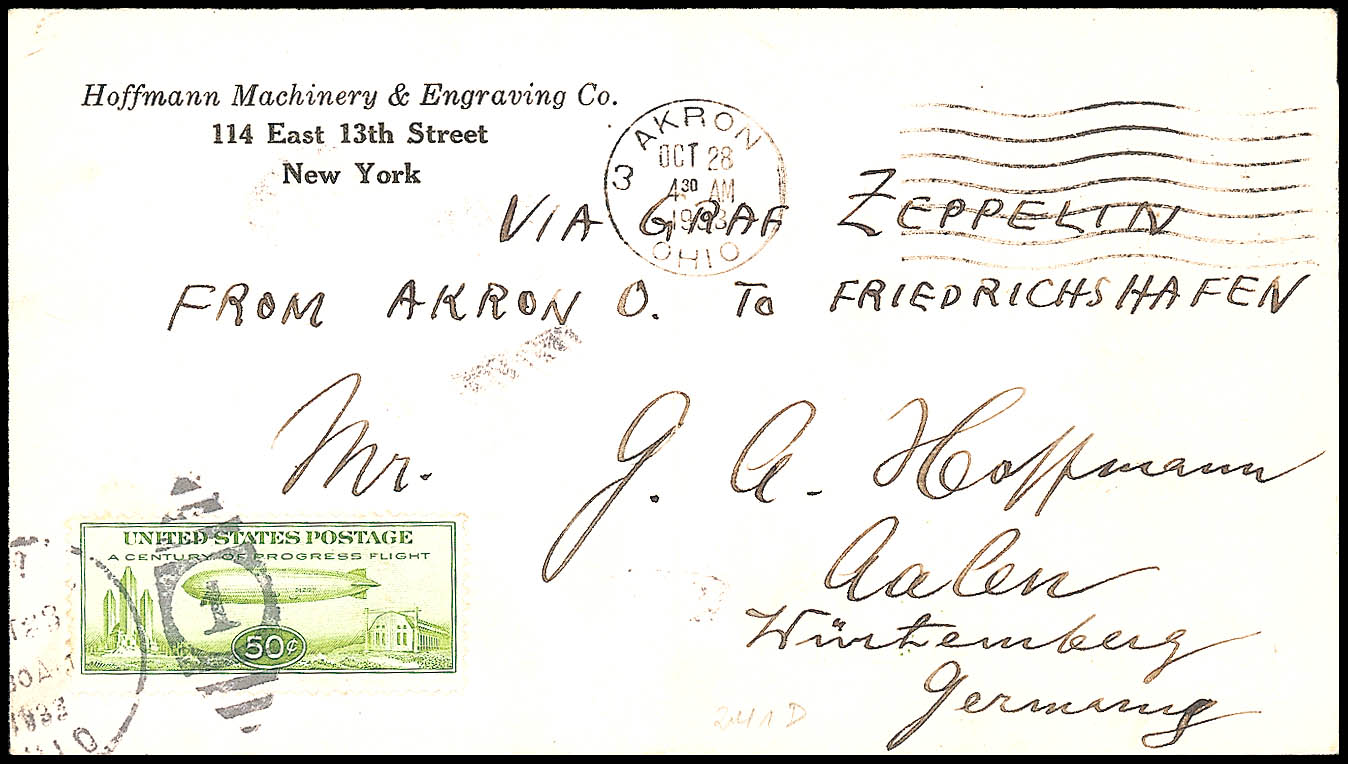 Hoffmann Machinery & Engraving Co.
114 East 13th Street
New York
AKRON
OCT 28
4 30 AM
1933
3
OHIO
VIA GRAF ZEPPELIN
FROM AKRON O. TO FRIEDRICHSHAFEN
Mr. J. A. Hoffmann
Aalen
Würtemberg
Germany
UNITED STATES POSTAGE
A CENTURY OF PROGRESS FLIGHT
50¢
1
241 D